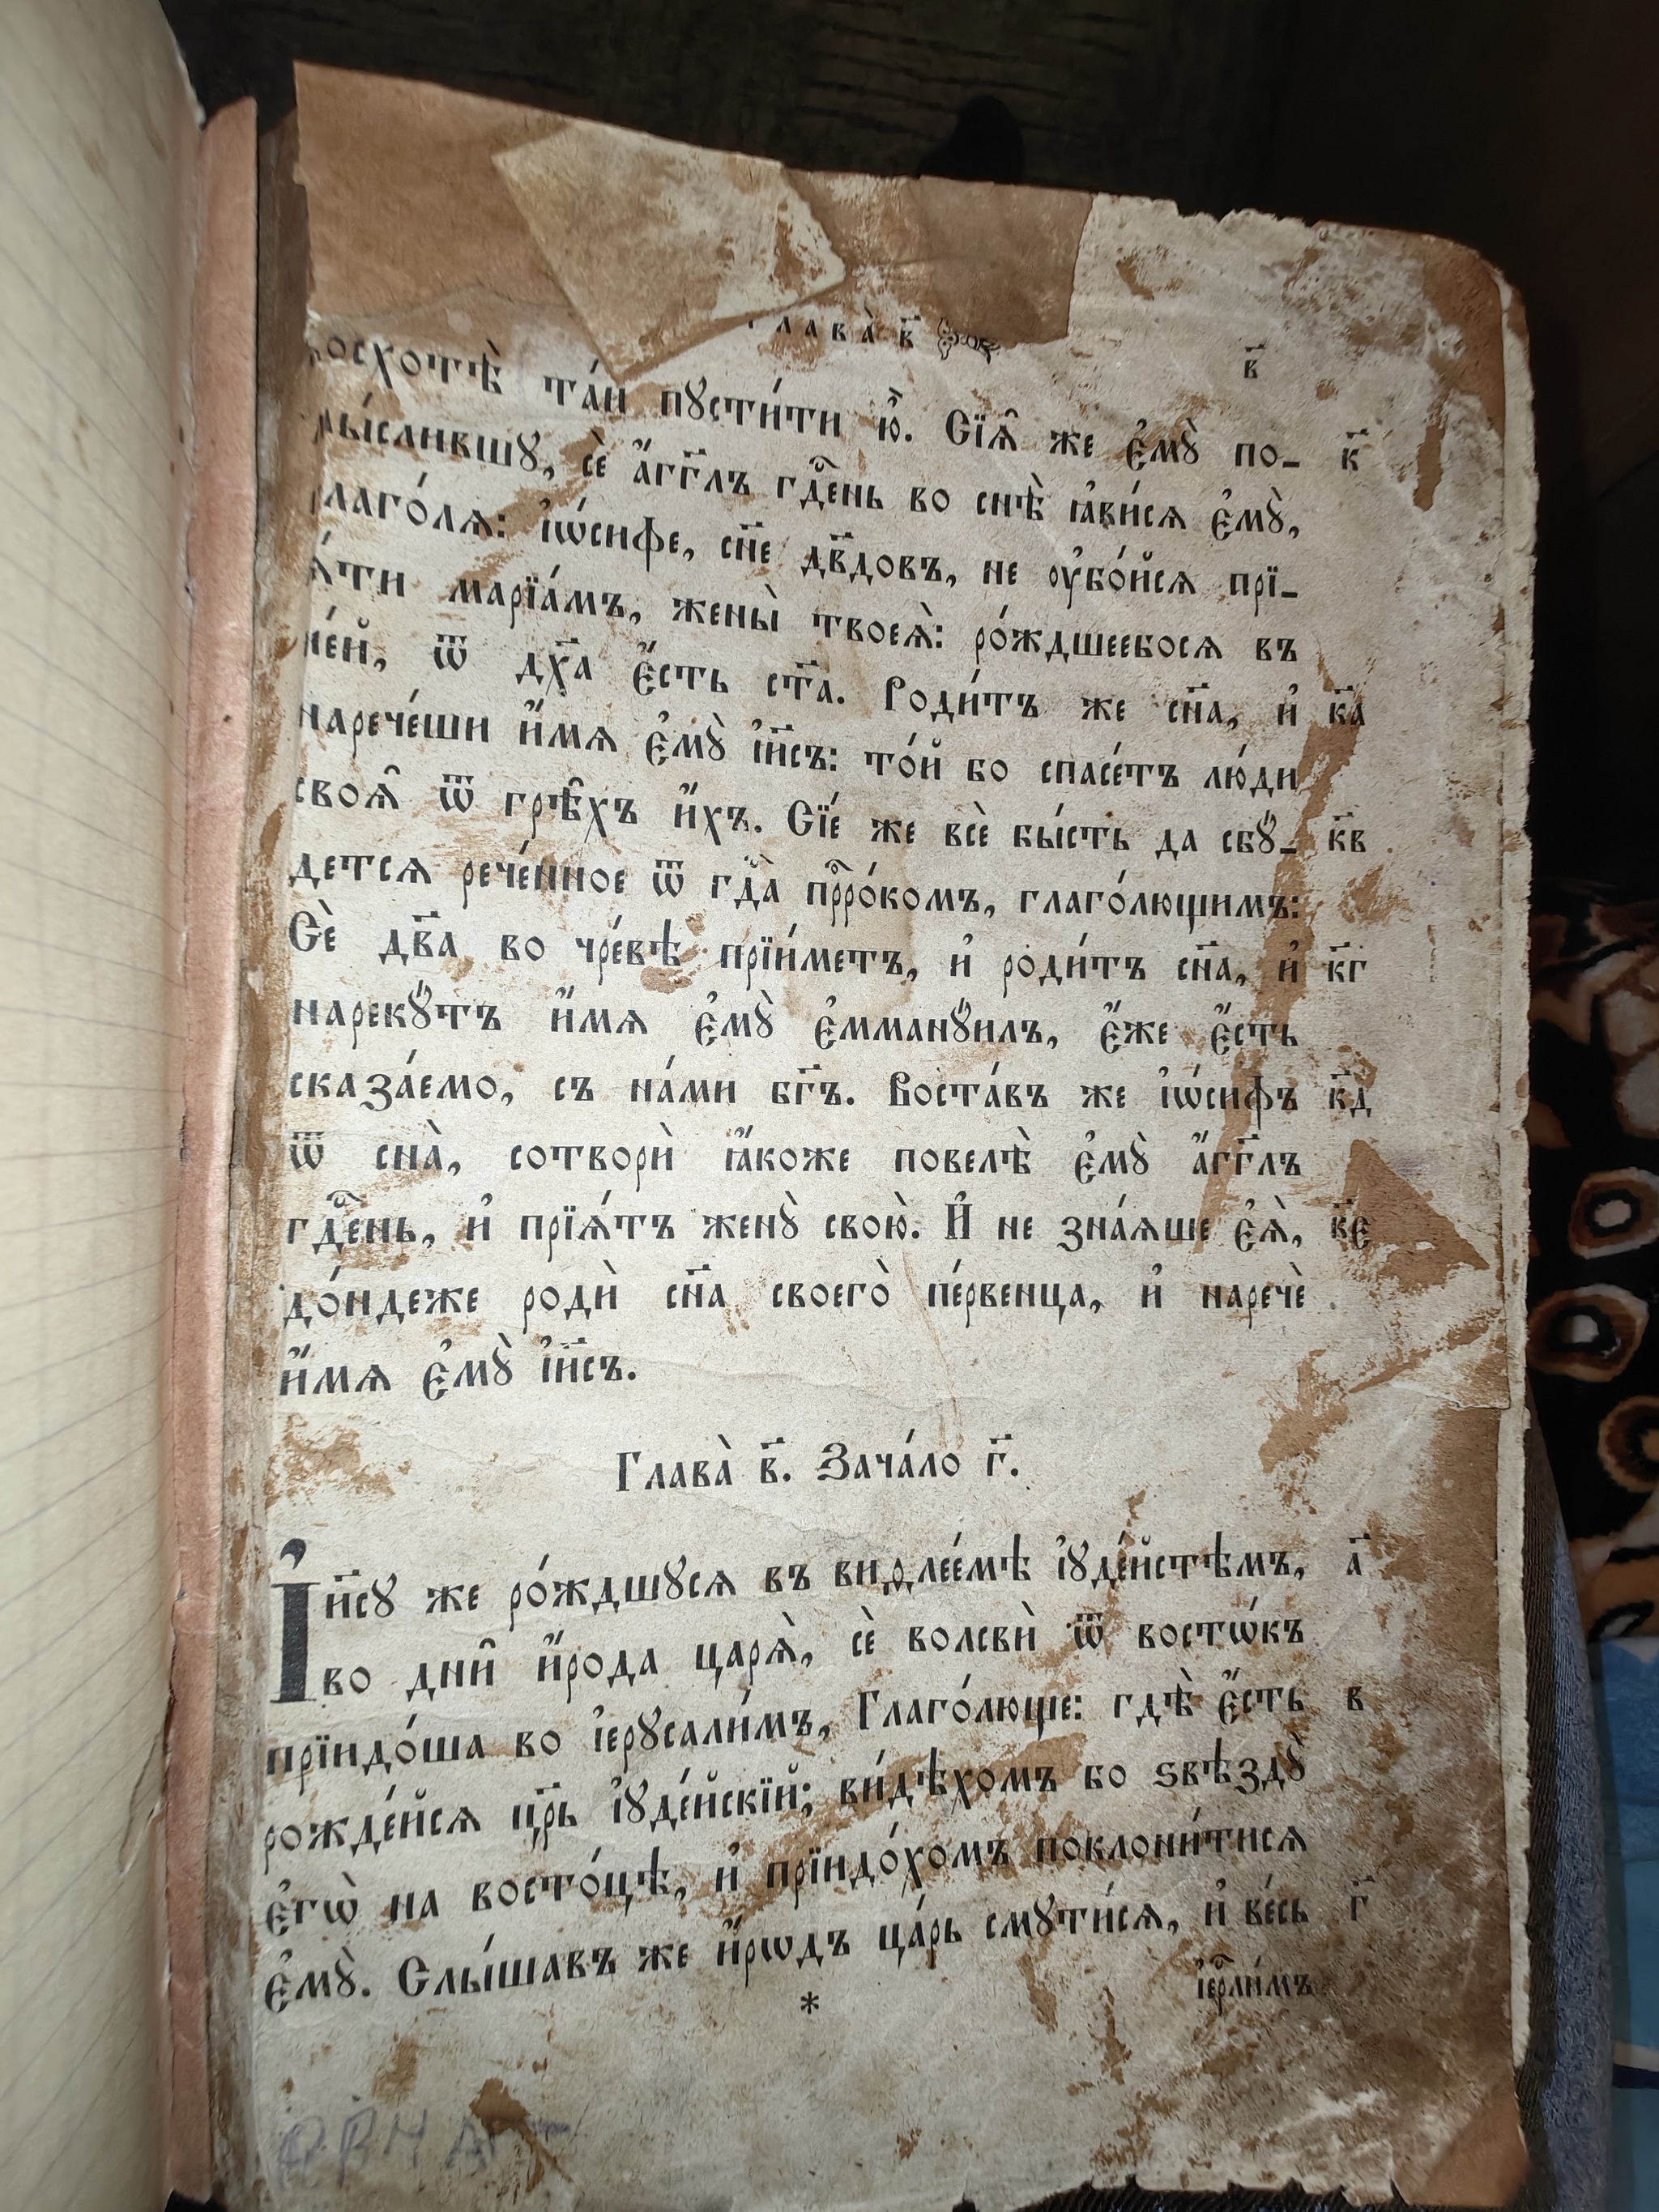 Глава̀ в҃
в҃
восхотѣ̀ та́й пꙋсти́ти ю҆̀. Сїѧ̑ же є҆мꙋ̀ по- к҃
мы́слившꙋ, сѐ а҆́гг҃лъ гдⷭ҇ень во снѣ̀ ꙗ҆ви́сѧ є҆мꙋ̀,
глаго́лѧ: і҆ѡ́сифе, сн҃е дв҃довъ, не ᲂу҆бо́йсѧ прїѧ-
ѧ́ти марїа́мъ, жены̀ твоеѧ̀: ро́ждшеебосѧ въ
не́й, ѿ дх҃а є҆́сть ст҃а. Роди́тъ же сн҃а, и҆ к҃а
нарече́ши и҆́мѧ є҆мꙋ̀ і҆и҃съ: то́й бо спасе́тъ лю́ди
своѧ̑ ѿ грѣ̑хъ и҆́хъ. Сїе́ же всѐ бы́сть да сбꙋ́- к҃в
детсѧ рече́нное ѿ гдⷭ҇а прⷪ҇ро́комъ, глаго́лющимъ:
Сѐ дв҃а во чре́вѣ прїи́метъ, и҆ роди́тъ сн҃а, и҆ к҃г
нарекꙋ́тъ и҆́мѧ є҆мꙋ̀ є҆мманꙋ́илъ, є҆́же є҆́сть
сказа́емо, съ на́ми бг҃ъ. Воста́въ же і҆ѡ́сифъ к҃д
ѿ сна̀, сотворѝ ꙗ҆́коже повелѣ̀ є҆мꙋ̀ а҆́гг҃лъ
гдⷭ҇ень, и҆ прїѧ́тъ женꙋ̀ свою̀. И҆ не зна́ѧше є҆ѧ̀, к҃є
до́ндеже родѝ сн҃а своего̀ пе́рвенца, и҆ наречѐ
и҆́мѧ є҆мꙋ̀ і҆и҃съ.
Глава̀ в҃. Зача́ло г҃.
І҆и҃сꙋ же ро́ждшꙋсѧ въ виѳлее́мѣ і҆ꙋде́йстѣмъ, а҃
во дни̑ и҆́рода царѧ̀, сѐ волсвѝ ѿ восто́къ
прїидо́ша во і҆ерꙋсали́мъ, Глаго́люще: гдѣ̀ є҆́сть в
рожде́йсѧ цр҃ь і҆ꙋде́йскїй; ви́дѣхомъ бо ѕвѣздꙋ̀
є҆гѡ̀ на восто́цѣ, и҆ прїидо́хомъ поклони́тисѧ
є҆мꙋ̀. Слы́шавъ же и҆́рѡдъ ца́рь смꙋти́сѧ, и҆ ве́сь г҃
*
і҆ерⷭ҇ли́мъ